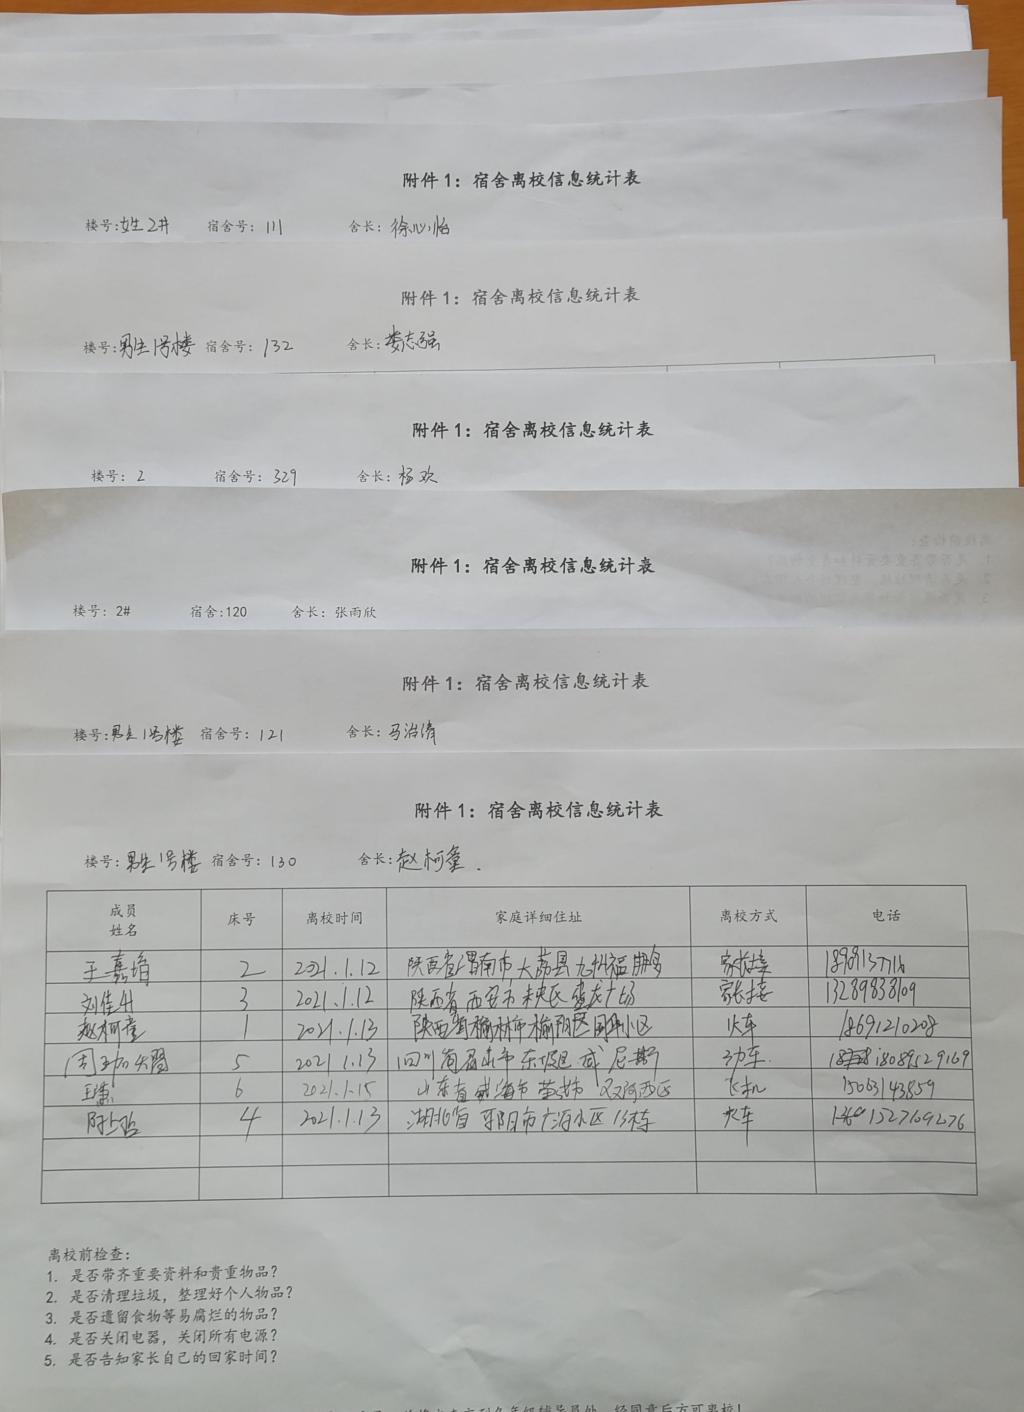 附件1：宿舍离校信息统计表
楼号:女生2# 宿舍号：111 舍长：徐心怡
附件1：宿舍离校信息统计表
楼号:男生1号楼 宿舍号：132 舍长：娄志强
附件1：宿舍离校信息统计表
楼号：2 宿舍号：329 舍长：杨欢
附件1：宿舍离校信息统计表
楼号：2# 宿舍:120 舍长：张雨欣
附件1：宿舍离校信息统计表
楼号:男生1号楼 宿舍号：121 舍长：马治清
附件1：宿舍离校信息统计表
楼号：男生1号楼 宿舍号：130 舍长:赵柯童.
成员姓名 床号 离校时间 家庭详细住址 离校方式 电话
王嘉 2 2021.1.12 陕西省渭南市大荔县九州 家长接
刘佳 3 2021.1.12 陕西省西安市未央区 广场 家长接 13289838109
赵柯童 1 2021.1.13 陕西省榆林市榆阳区 小区 火车 18691210208
周 5 2021.1.13 四川省眉山市东坡区威尼斯 动车 18089529169
王 6 2021.1.15 山东省威海市荣成市 河西区 飞机 15063143859
4 2021.1.13 湖北省枣阳市 小区13栋 火车 15527109276
离校前检查：
1. 是否带齐重要资料和贵重物品？
2. 是否清理垃圾，整理好个人物品？
3. 是否遗留食物等易腐烂的物品？
4. 是否关闭电器，关闭所有电源？
5. 是否告知家长自己的回家时间？
经同意后方可离校！